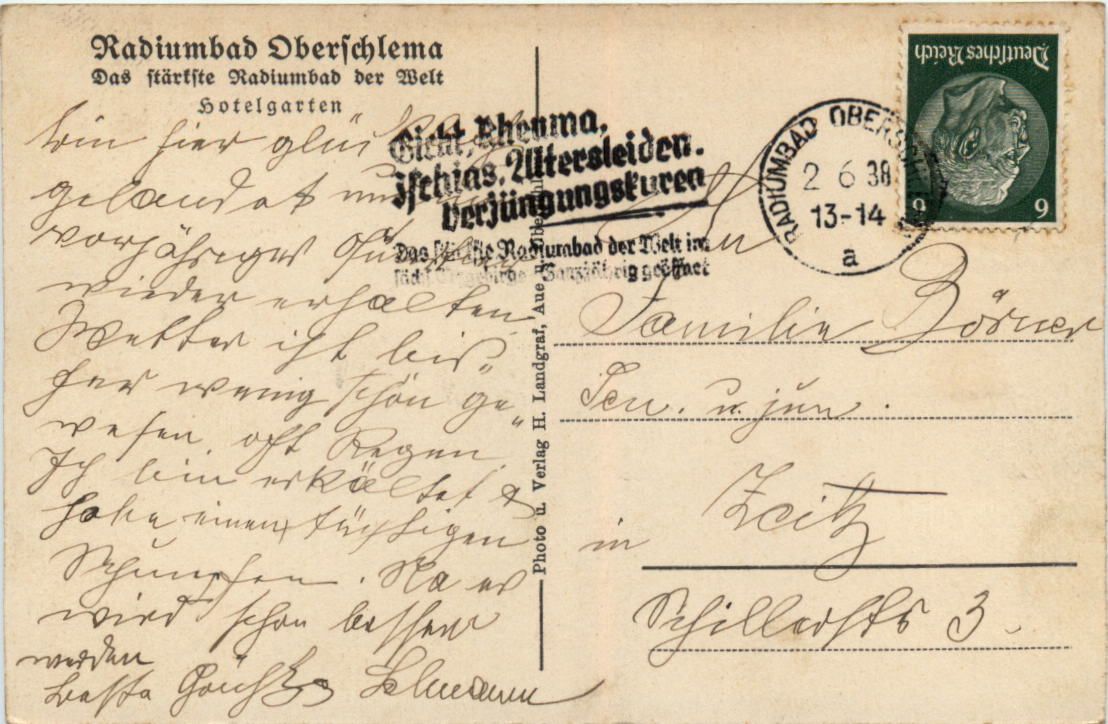 Radiumbad Oberschlema
Das stärkste Radiumbad der Welt
Hotelgarten
Bin hier glücklich
gelandet und
vorjähriges
wieder erhalten
Wetter ist bis-
her wenig schön ge-
wesen oft Regen.
Ich bin erkältet &
habe einen tüchtigen
Schnupfen. Na es
wird schon besser
werden
Beste Grüße
Photo u. Verlag H. Landgraf, Aue
Gicht, Rheuma,
Ischias, Altersleiden.
Verjüngungskuren
Das stärkste Radiumbad der Welt im
sächs. Erzgebirge Ganzjährig geöffnet
RADIUMBAD OBERSCHLEMA
2 6 38
13-14
a
Deutsches Reich
6 6
Familie Börner
Sen. u. jun.
in Zeitz
Schillerstr 3.